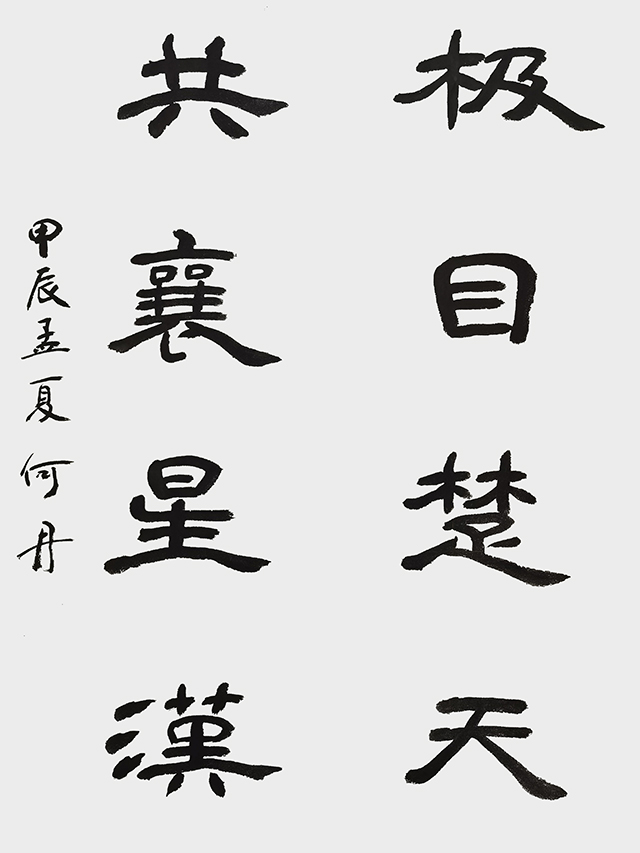 极目楚天
共襄星漢
甲辰孟夏何丹